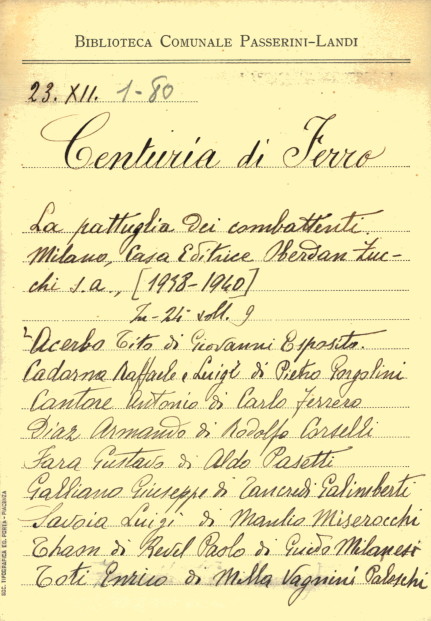 BIBLIOTECA COMUNALE PASSERINI-LANDI
23. XII. 1-80
Centuria di Ferro
La pattuglia dei combattenti.
Milano, Casa Editrice Oberdan Zuc-
chi s.a., [1938-1940]
In-24 voll. 9
Acerbo Tito di Giovanni Esposito.
Cadorna Raffaele e Luigi di Pietro Gorgolini
Cantore Antonio di Carlo Ferrero
Diaz Armando di Rodolfo Corselli
Fara Gustavo di Aldo Pasetti
Galliano Giuseppe di Tancredi Galimberti
Savoia Luigi di Manlio Miserocchi
Thaon di Revel Paolo di Guido Milanesi
Toti Enrico di Milla Vagnini Paloschi
SOC. TIPOGRAFICA ED. PORTA - PIACENZA